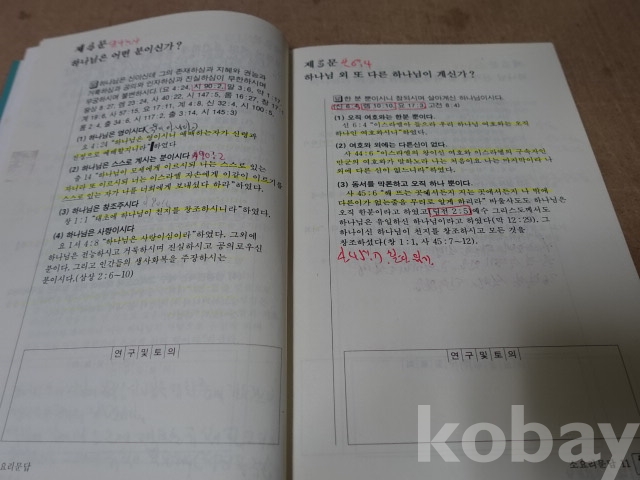 제4문
하나님은 어떤 분이신가?
하나님은 신이신데 그의 존재하심과 지혜와 권능과
거룩하심과 공의와 인자하심과 진실하심이 무한하시며
무궁하시며 불변하시다. (요 4:24, 시 90:2, 말 3:6, 약 1:17,
왕상 8:27, 렘 23:24, 사 40:22, 시 147:5, 롬 16:27, 창 17:1,
계 19:6, 사 57:15, 요 17:11, 계 4:8, 신 32:4, 시 100:5,
롬 2:4, 출 34:6, 시 117:2, 시 145:3)
(1) 하나님은 영이시다.
요 4:24 "하나님은 영이시니 예배하는자가 신령과
진정으로 예배할지니라" 하였다
(2) 하나님은 스스로 계시는 분이시다 시90:2
출 3:14 "하나님이 모세에게 이르시되 나는 스스로 있는
자니라 또 이르시되 너는 이스라엘 자손에게 이같이 이르기를
스스로 있는 자가 나를 너희에게 보내셨다 하라" 하였다.
(3) 하나님은 창조주시다
창 1:1 "태초에 하나님이 천지를 창조하시니라" 하였다.
(4) 하나님은 사랑이시다
요 1서 4:8 "하나님은 사랑이심이라" 하였다. 그외에
하나님은 전능하시고 거룩하시며 진실하시고 공의로우신
분이다. 그리고 인간들의 생사화복을 주장하시는
분이시다.(삼상 2:6~10)
연구및토의
소요리문답
제5문 신6:4
하나님 외 또 다른 하나님이 계신가?
한 분 뿐이시니 참되시며 살아계신 하나님이시다.
(신 6:4, 렘 10:10, 요 17:3, 고전 8:4)
(1) 오직 여호와는 한분 뿐이다.
신 6:4 "이스라엘아 들으라 우리 하나님 여호와는 오직
하나인 여호와시니" 하였다.
(2) 여호와 외에는 다른신이 없다.
사 44:6 "이스라엘의 왕이신 여호와 이스라엘의 구속자인
만군의 여호와가 말하노라 나는 처음이요 나는 마지막이라 나
외에 다른 신이 없느니라" 하였다.
(3) 동서를 막론하고 오직 하나 뿐이다.
사 45:6 "해 뜨는 곳에서든지 지는 곳에서든지 나 밖에
다른이가 있는줄을 무리로 알게 하리라" 하였다.
오직 한분이라고 하였고 딤전 2:5 예수 그리스도께서도
하나님은 유일하신 하나님이라고 하였다(막 12:29).
하나이신 하나님이 천지를 창조하시고 모든 것을
창조하셨다(창 1:1, 사 45:7~12).
연구및토의
소요리문답 11
kobay